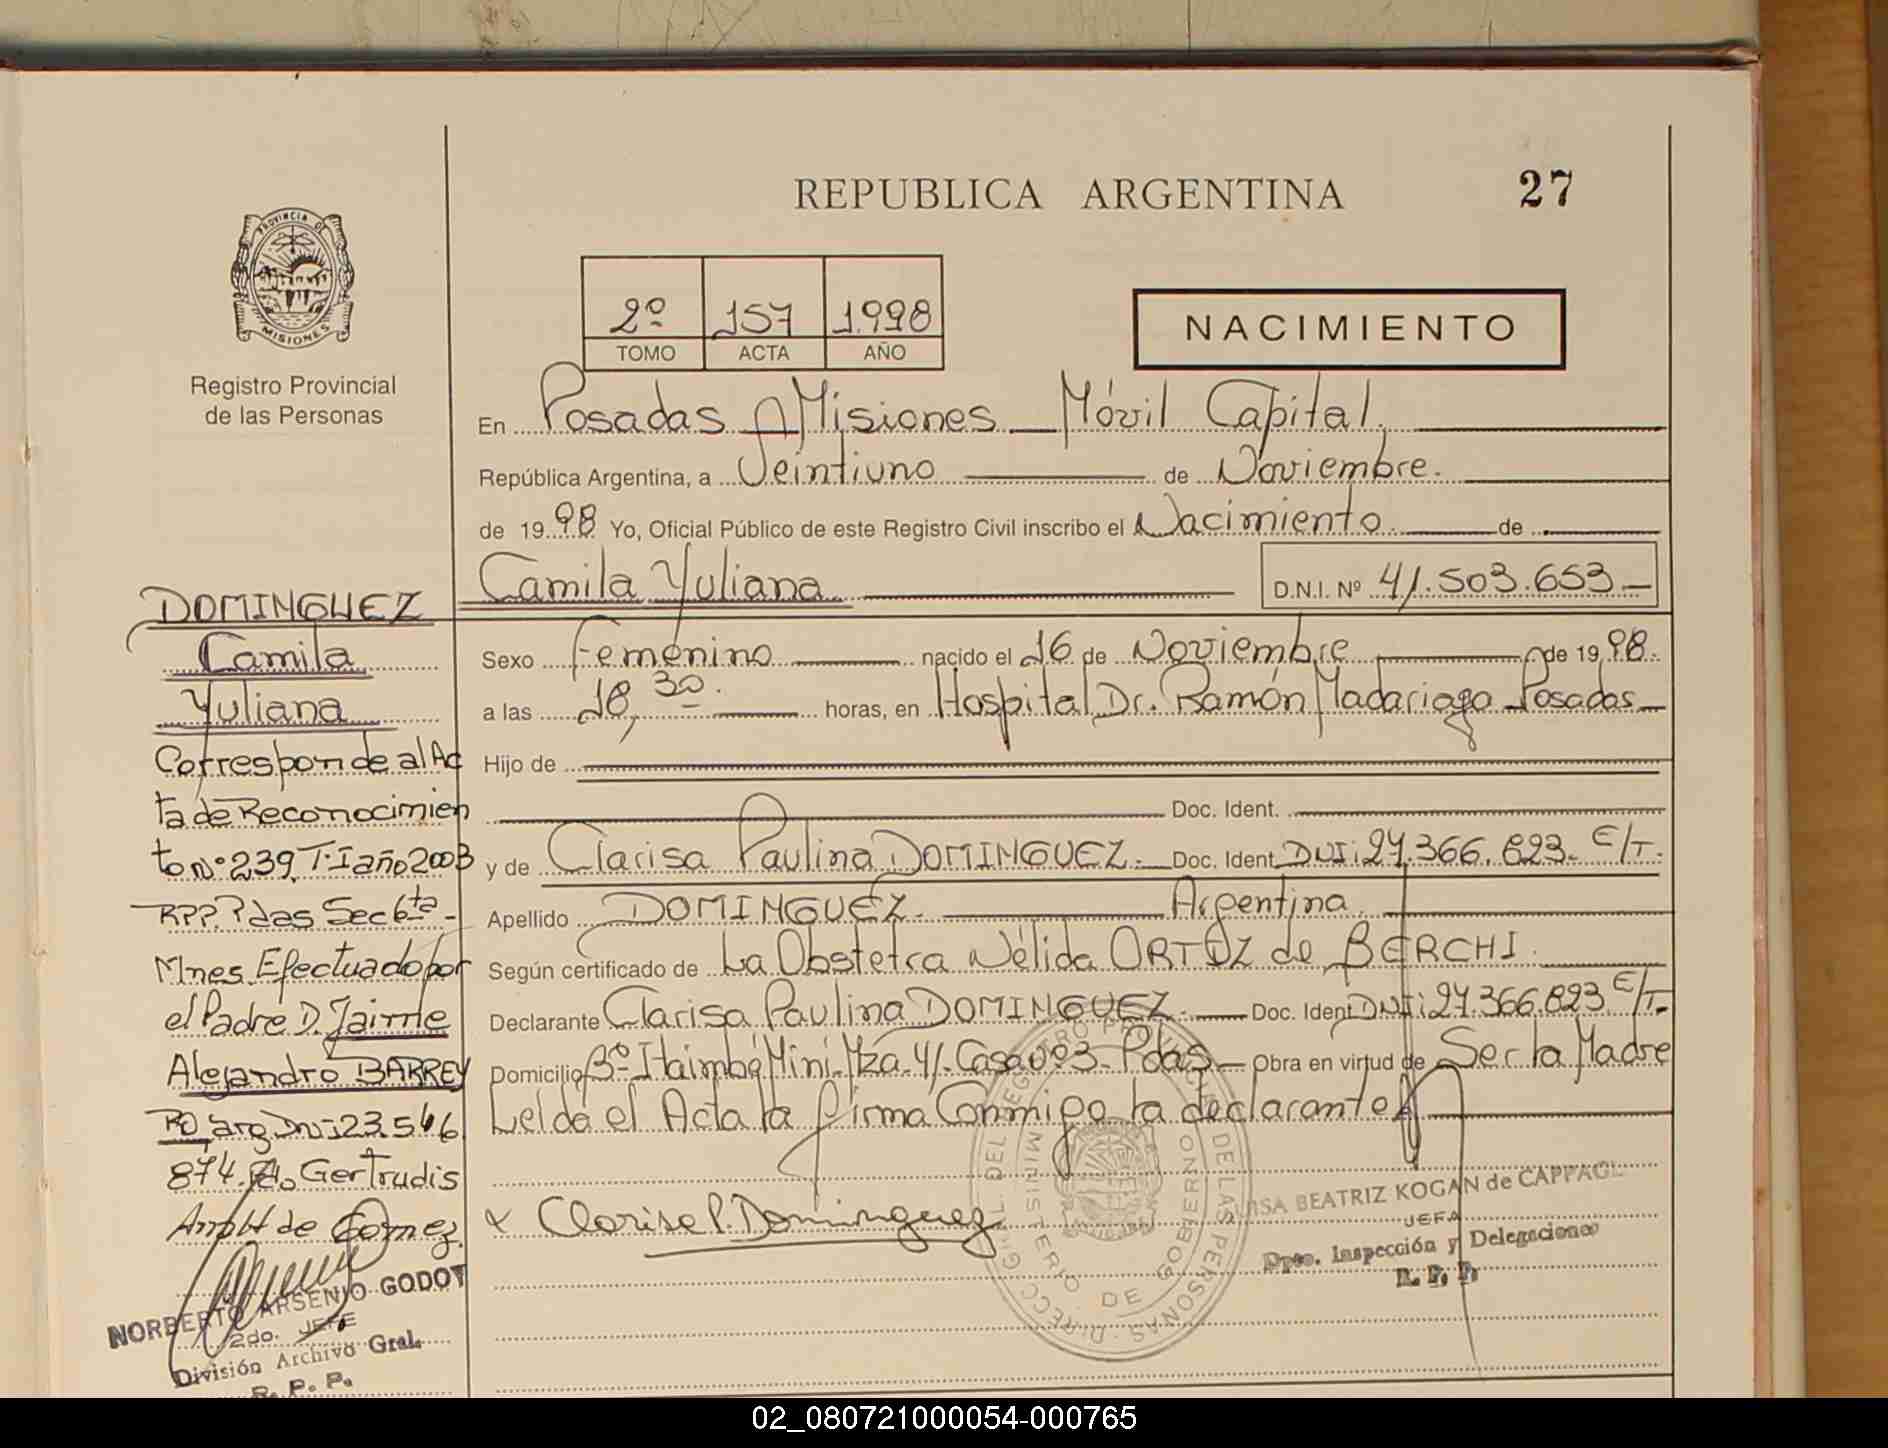 REPUBLICA ARGENTINA
27
PROVINCIA DE
MISIONES
Registro Provincial
de las Personas
2º 157 1.998
TOMO ACTA AÑO
NACIMIENTO
En Posadas Misiones Móvil Capital,
República Argentina, a Veintiuno de Noviembre.
de 19 98 Yo, Oficial Público de este Registro Civil inscribo el Nacimiento de
Camila Yuliana D.N.I. Nº 41.503.653
Sexo Femenino nacido el 16 de Noviembre de 19 98.
a las 18,30. horas, en Hospital Dr. Ramón Madariaga Posadas
Hijo de
Doc. Ident.
y de Clarisa Paulina DOMINGUEZ. Doc. Ident. DNI: 27.366.823. E/T.
Apellido DOMINGUEZ. Argentina.
Según certificado de La Obstetra Nélida ORTIZ de BERCHI.
Declarante Clarisa Paulina DOMINGUEZ. Doc. Ident DNI: 27.366.823 E/T.
Domicilio Bº Itaimbé Miní Mza. 41. Casa nº 3. Pdas Obra en virtud de Ser la Madre
Leída el Acta la firma Conmigo la declarante
x Clarisa P. Dominguez
DOMINGUEZ
Camila
Yuliana
Corresponde al Ac
ta de Reconocimien
to nº 239, T. I año 2003
Sec 6ta
Mnes. Efectuado por
el Padre D. Jaime
Alejandro BARREY
RO, arg Dni: 23.546
874. Fdo Gertrudis
de Gomez.
NORBERTO ARSENIO GODOY
2do. JEFE
División Archivo Gral.
R. P. P.
DIRECC. GRAL. DEL REGISTRO PROVINCIAL DE LAS PERSONAS
MINISTERIO DE GOBIERNO
LUISA BEATRIZ KOGAN de CAPPAGLI
JEFA
Dpto. Inspección y Delegaciones
R. P. P.
02_080721000054-000765